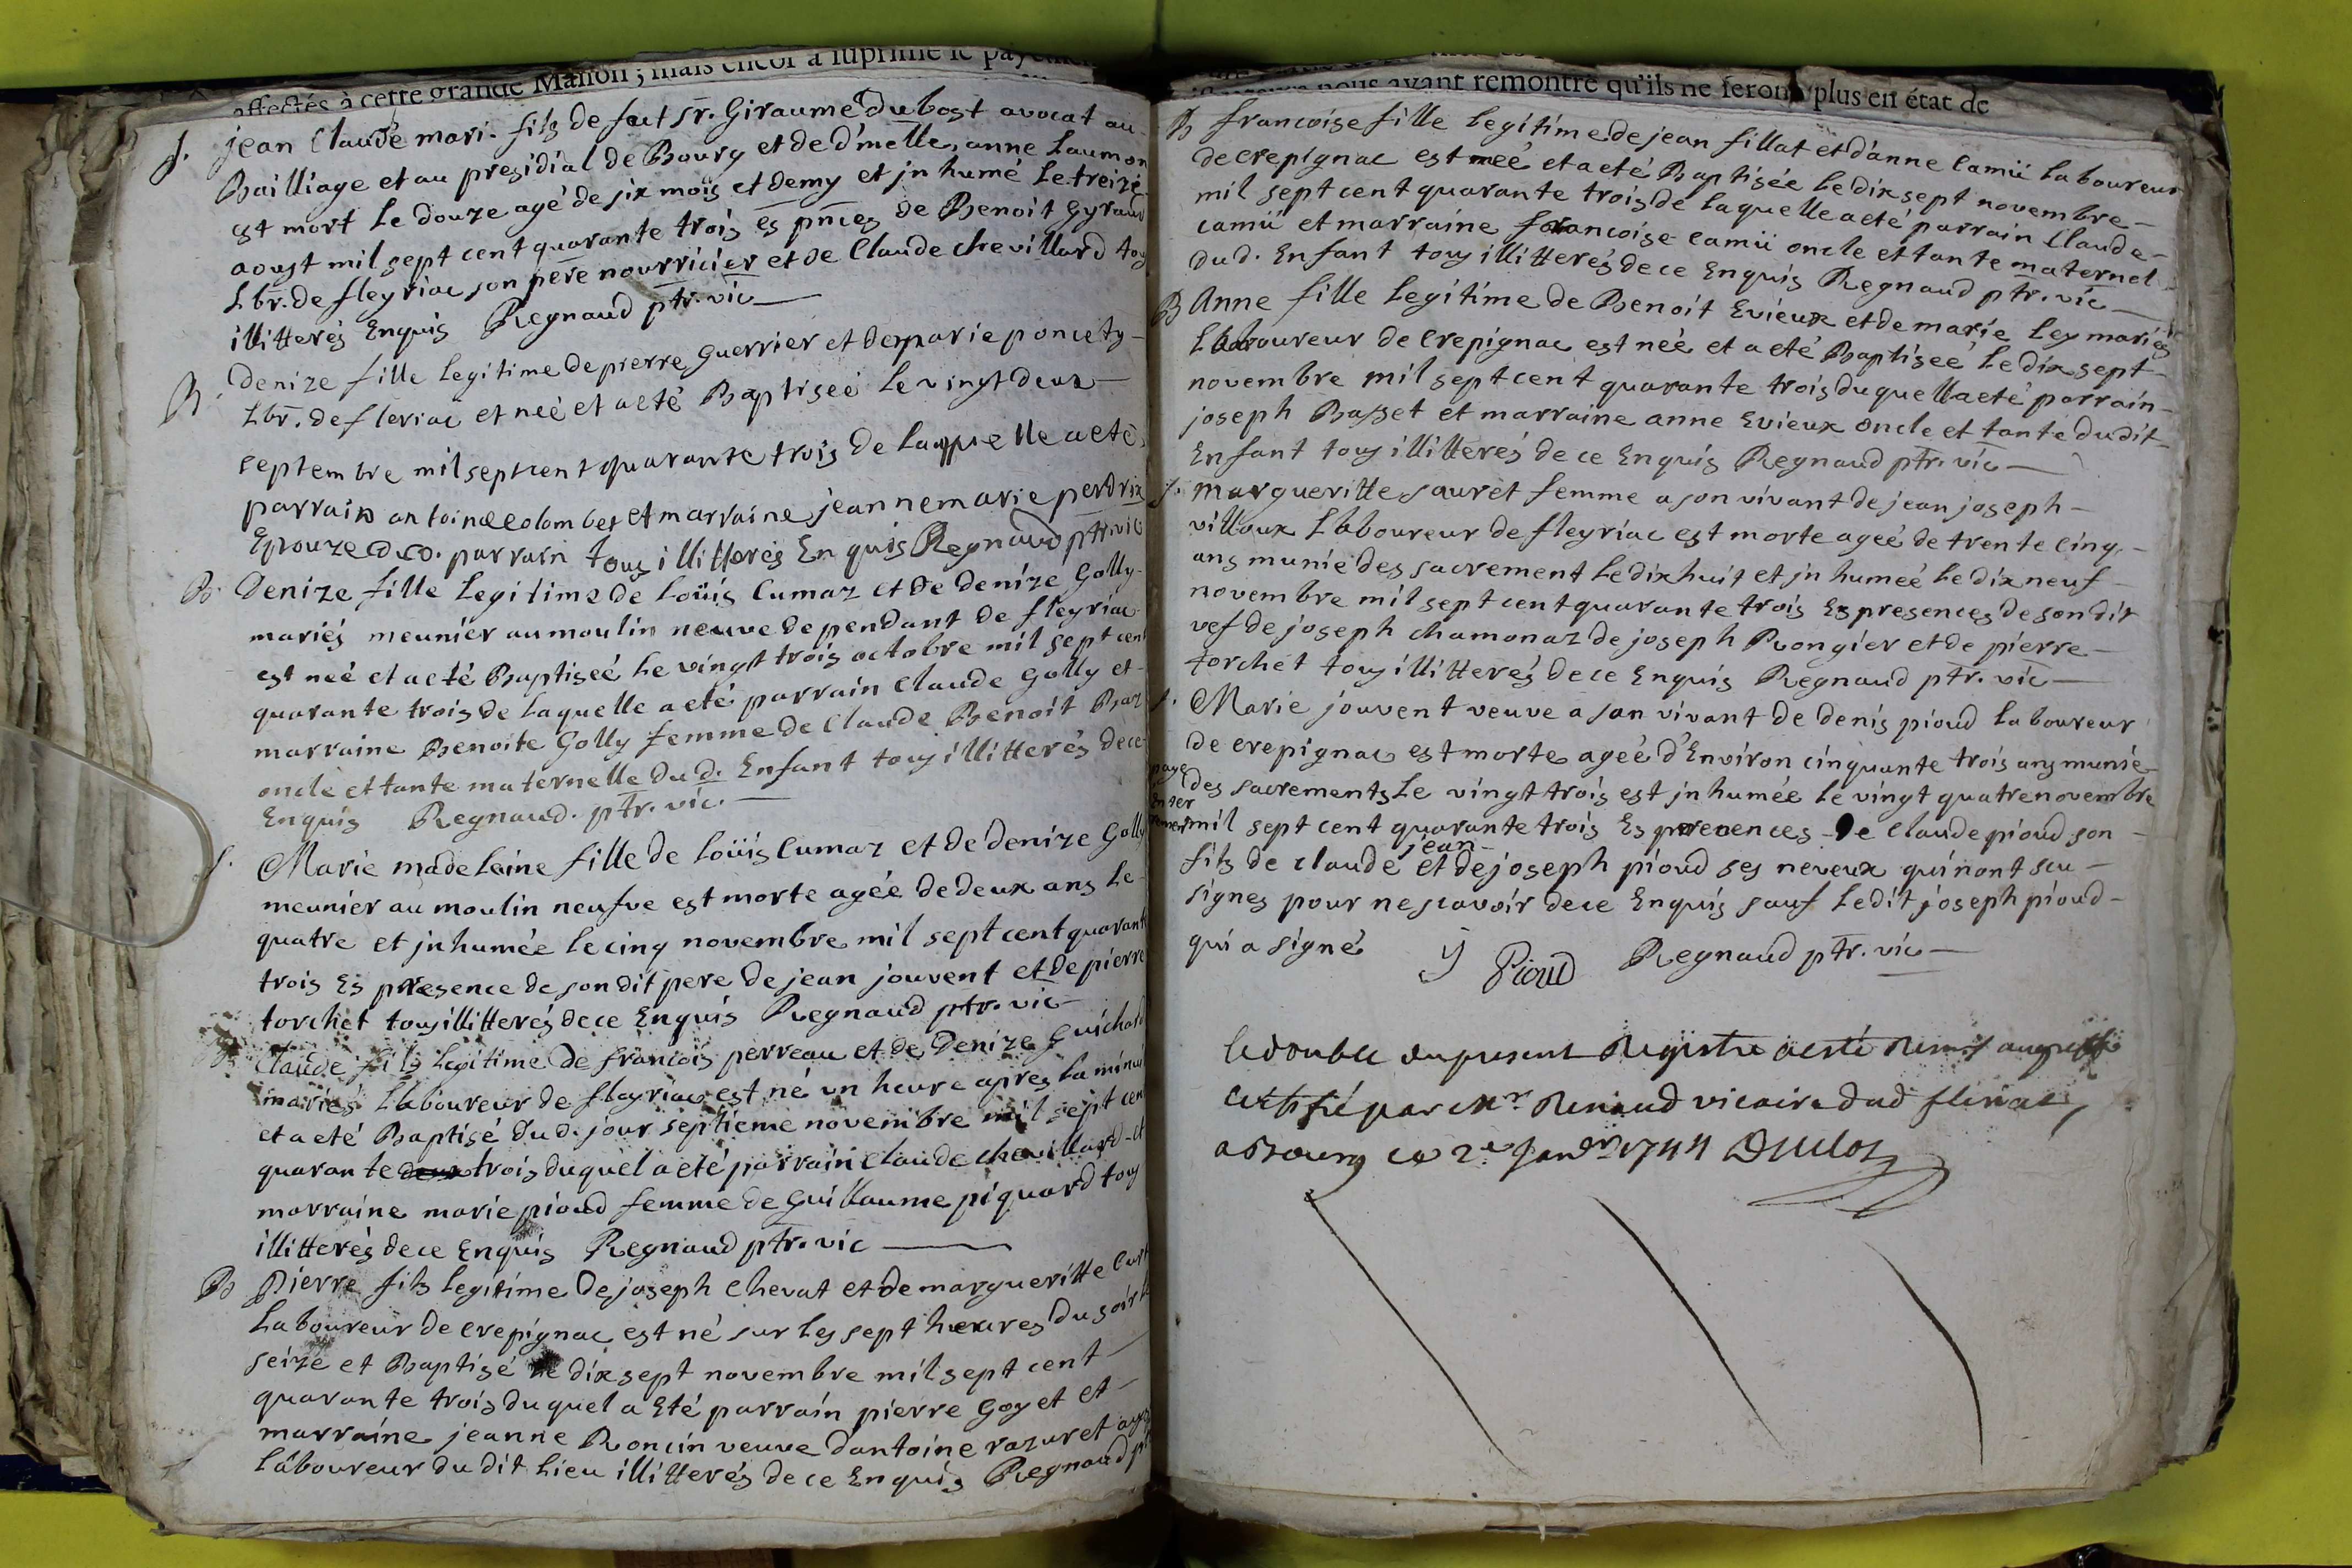 affectés à cette grande Maison ; mais encor a suprimé le
S. jean Claude mari. fils de feu Sr. Giraume Dubost avocat au
Bailliage et au presidial de Bourg et de d'melle. anne Laumon
est mort le douze agé de six mois et demy et jnhumé le treize
aoust mil sept cent quarante trois es pnces de Benoit Gyraud
Lbr. de fleyriac son pere nourricier et de Claude chevillard tous
illitterés Enquis Regnaud ptr. vic
B. Denize fille legitime de pierre Guerrier et de marie poncety
Lbr. de fleriac et neé et a eté Baptiseé le vingt deux
septembre mil sept cent quarante trois de laquelle a eté
parrain antoine colombet et marraine jeanne marie perdrix
Epouze dud. parrain tous illitterés Enquis Regnaud ptr. vic
B. Denize fille legitime de Loüis Cumaz et de denize Golly
mariés meunier au moulin neuve dependant de fleyriac
est neé et a eté Baptiseé le vingt trois octobre mil sept cent
quarante trois de laquelle a eté parrain Claude Golly et
marraine Benoite Golly femme de Claude Benoit
oncle et tante maternelle dud. Enfant tous illitterés de ce
Enquis Regnaud. ptr. vic.
S. Marie madeleine fille de Loüis Cumaz et de denize Golly
meunier au moulin neufve est morte agée de deux ans le
quatre et jnhumée le cinq novembre mil sept cent quarante
trois Es presence de son dit pere de jean jouvent et de pierre
torchet tous illitterés de ce Enquis Regnaud ptr. vic
Claude fils legitime de francois perreau et de Denize Guichard
mariés Laboureur de fleyriac est né un heure apres la minui
et a eté Baptisé dud. jour septieme novembre mil sept cen
quarante deux trois duquel a eté parrain Claude chevillard et
marraine marie pioud femme de Guillaume piquard tous
illitterés de ce Enquis Regnaud ptr. vic
B Pierre fils legitime de joseph Chevat et de margueritte
Laboureur de crepignac est né sur les sept heures du soir le
seize et Baptisé le dix sept novembre mil sept cent
quarante trois duquel a Eté parrain pierre Goyet et
marraine jeanne Roncin veuve dantoine razuret
laboureur du dit Lieu illitterés de ce Enquis Regnaud
nous ayant remontré qu'ils ne seront plus en état de
B francoise fille legitime de jean fillat et d'anne Camü laboureur
de crepignac est neé et a eté Baptisée le dix sept novembre
mil sept cent quarante trois de laquelle a eté parrain Claude
camü et marraine francoise camü oncle et tante maternel
dud. Enfant tous illitterés de ce Enquis Regnaud ptr. vic
B Anne fille legitime de Benoit Evieux et de marie Ley mariés
Laboureur de crepignac est neé et a eté Baptiseé le dix sept
novembre mil sept cent quarante trois duquella eté parrain
joseph Basset et marraine anne Evieux oncle et tante dudit
Enfant tous illitterés de ce Enquis Regnaud ptr. vic
S. margueritte sauret femme a son vivant de jean joseph
villoux Laboureur de fleyriac est morte ageé de trente cinq
ans munie des sacrement le dix huit et jnhumeé le dix neuf
novembre mil sept cent quarante trois Es presences de son dit
vef de joseph chamonaz de joseph Rongier et de pierre
torchet tous illitterés de ce Enquis Regnaud ptr. vic
S. Marie jouvent veuve a son vivant de denis pioud laboureur
de crepignac est morte ageé d'Environ cinquante trois ans munie
des sacrements Le vingt trois est jnhumée le vingt quatre novembre
mil sept cent quarante trois Es presences de Claude pioud son
fils de claude jean et de joseph pioud ses neveux qui nont sceu
signes pour ne scavoir de ce Enquis sauf ledit joseph pioud
qui a signé J Pioud Regnaud ptr. vic
le double du present Registre a esté Remis au greffe
certifié par Mr Renaud vicaire dud fleriac,
a Bourg ce 2e Janvr 1744 Duclos